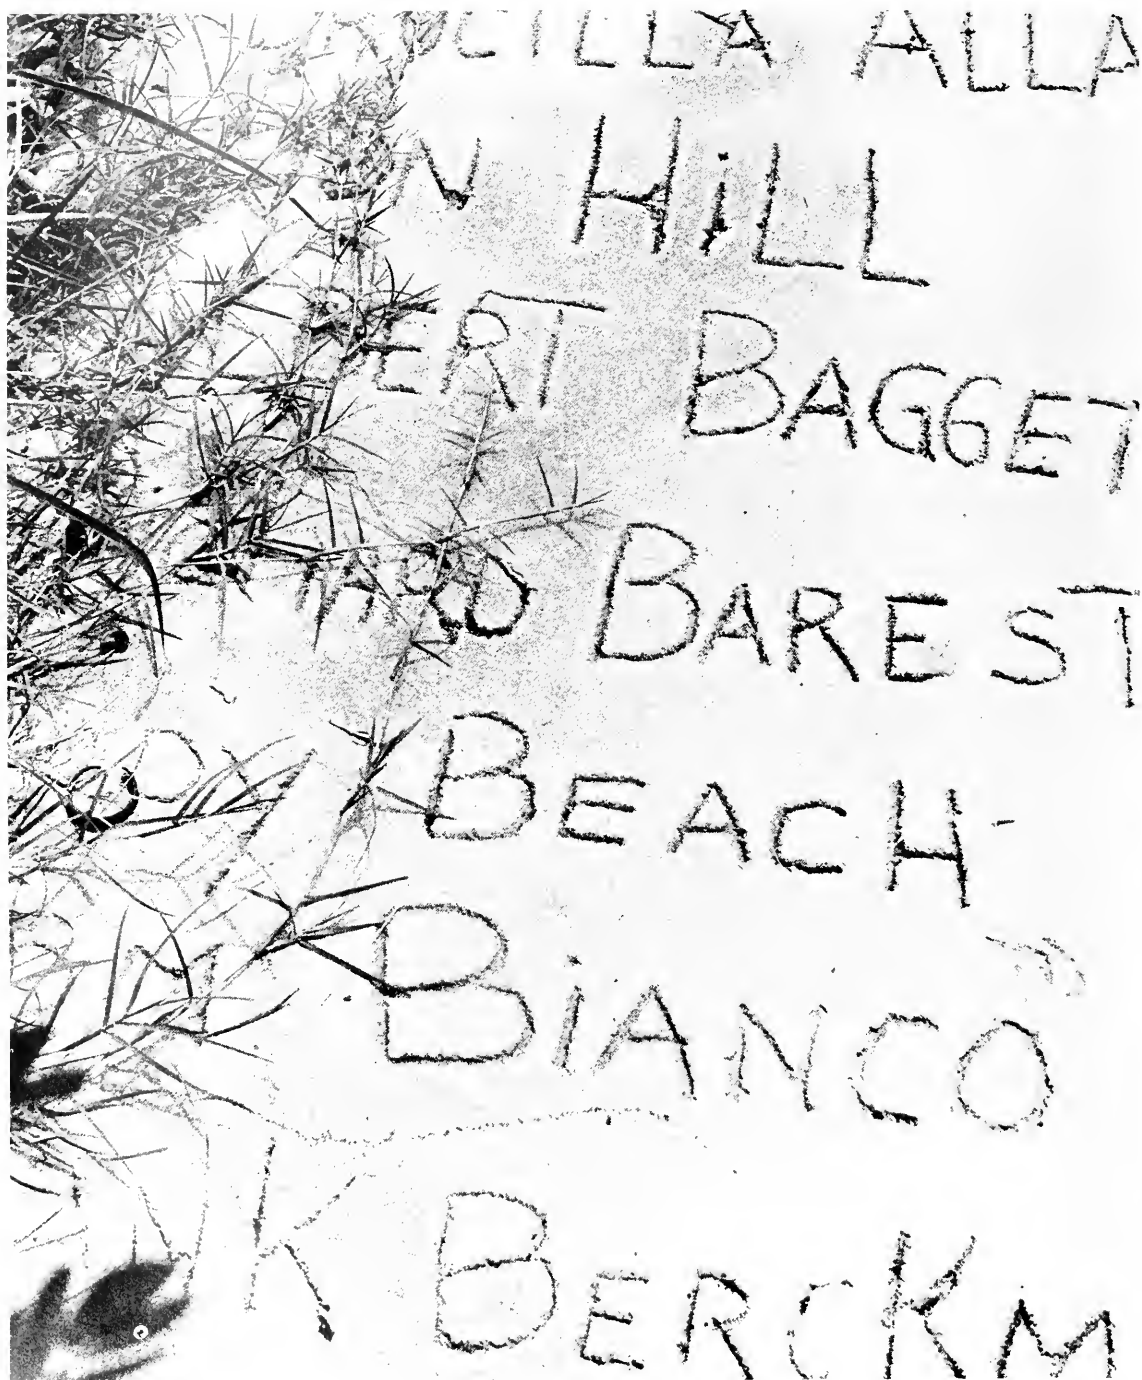 CILLA ALLA
N HiLL
ERT BAGGET
ARD BAREST
BEACH
BiANCO
K BERCKM